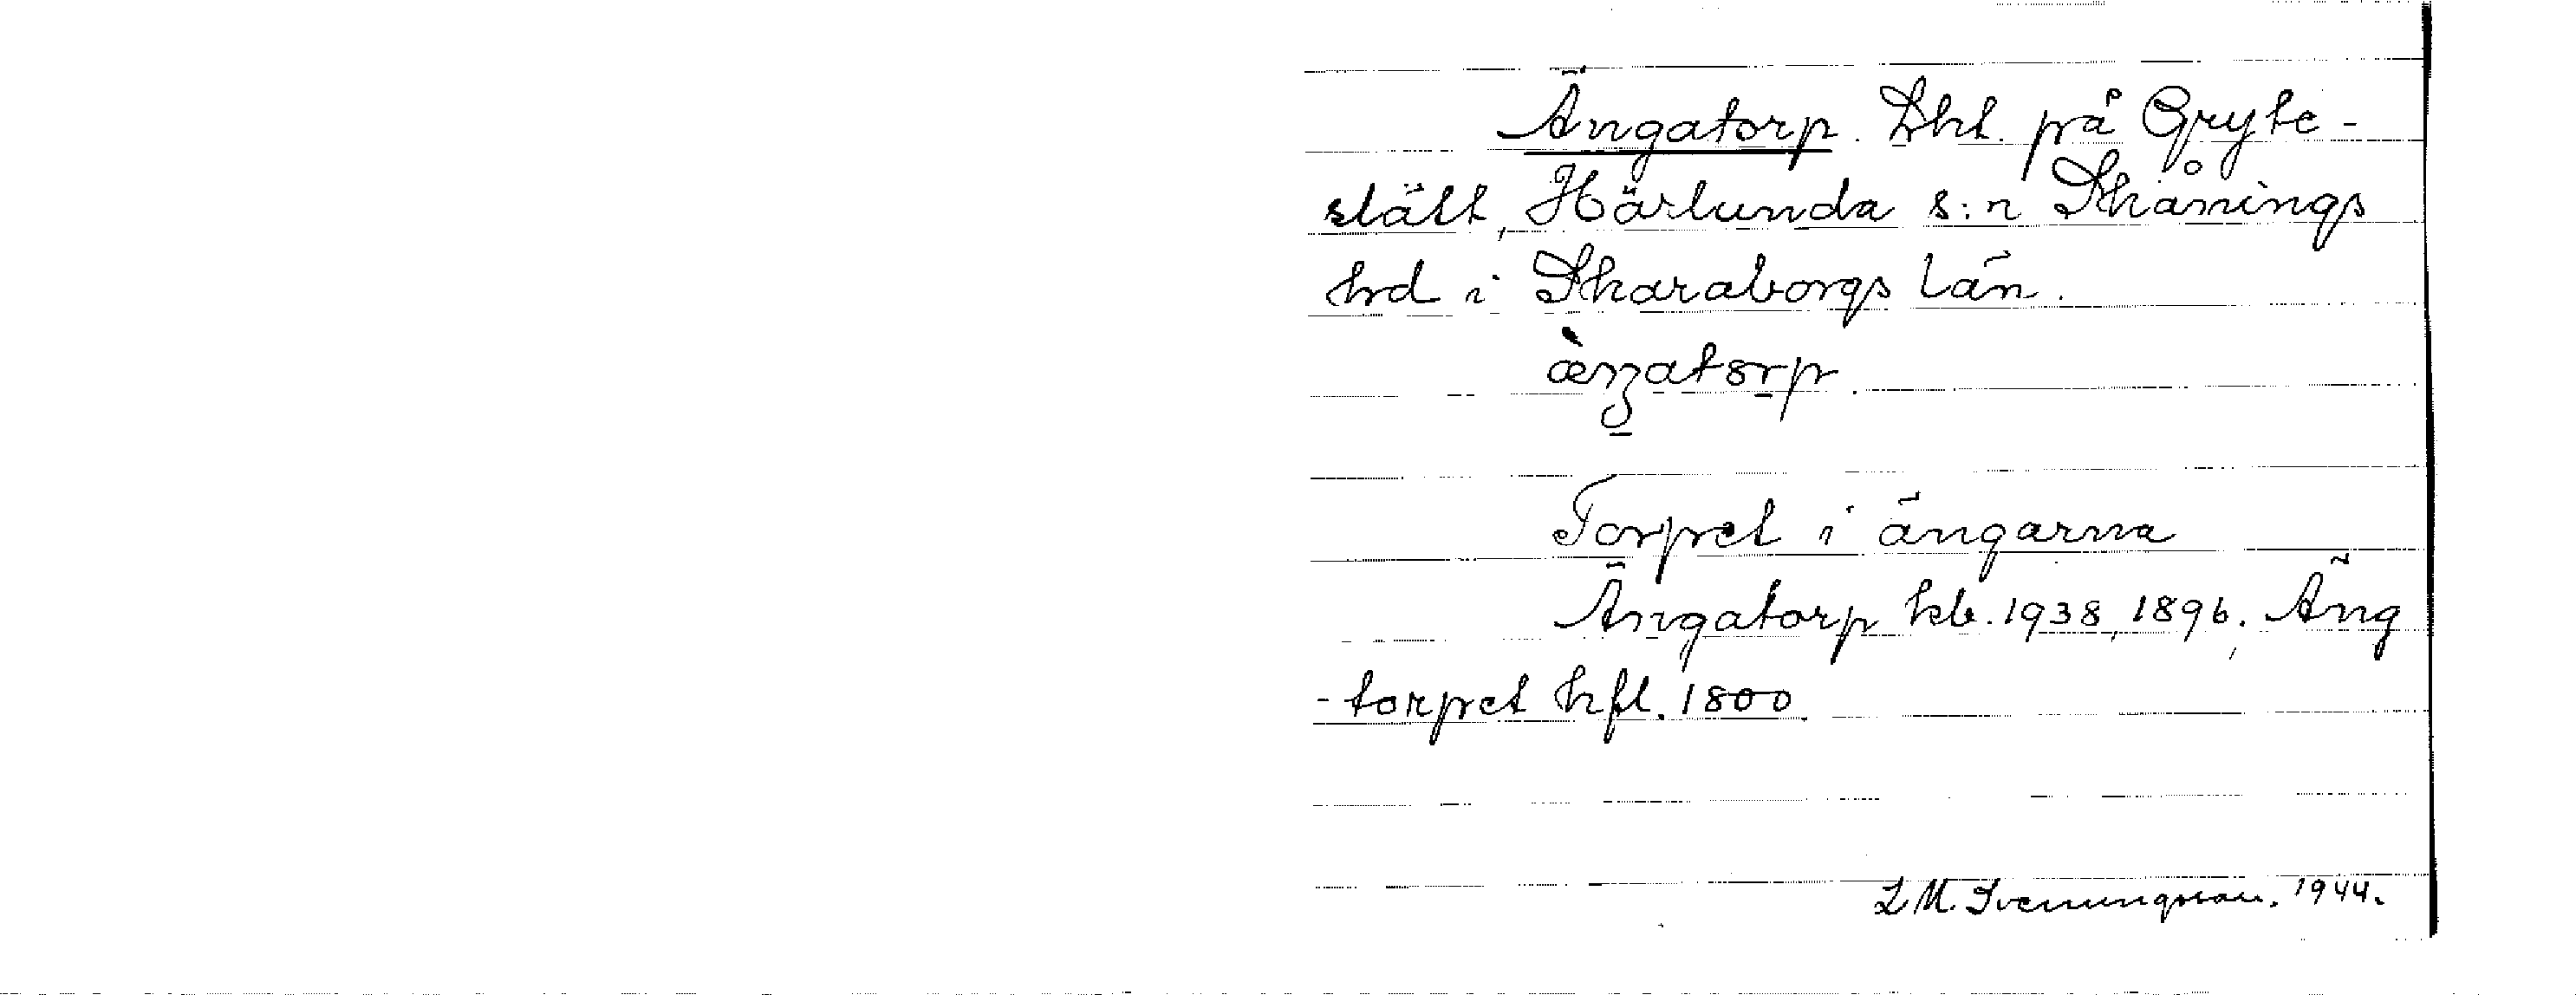 Ängatorp. Lht. på Gryte-
slätt, Härlunda s:n Skånings
hrd i Skaraborgs län.
Torpet i ängarna
Ängatorp kb. 1938, 1896, Äng
-torpet hfl. 1800.
L M. Svenungsson. 1944.